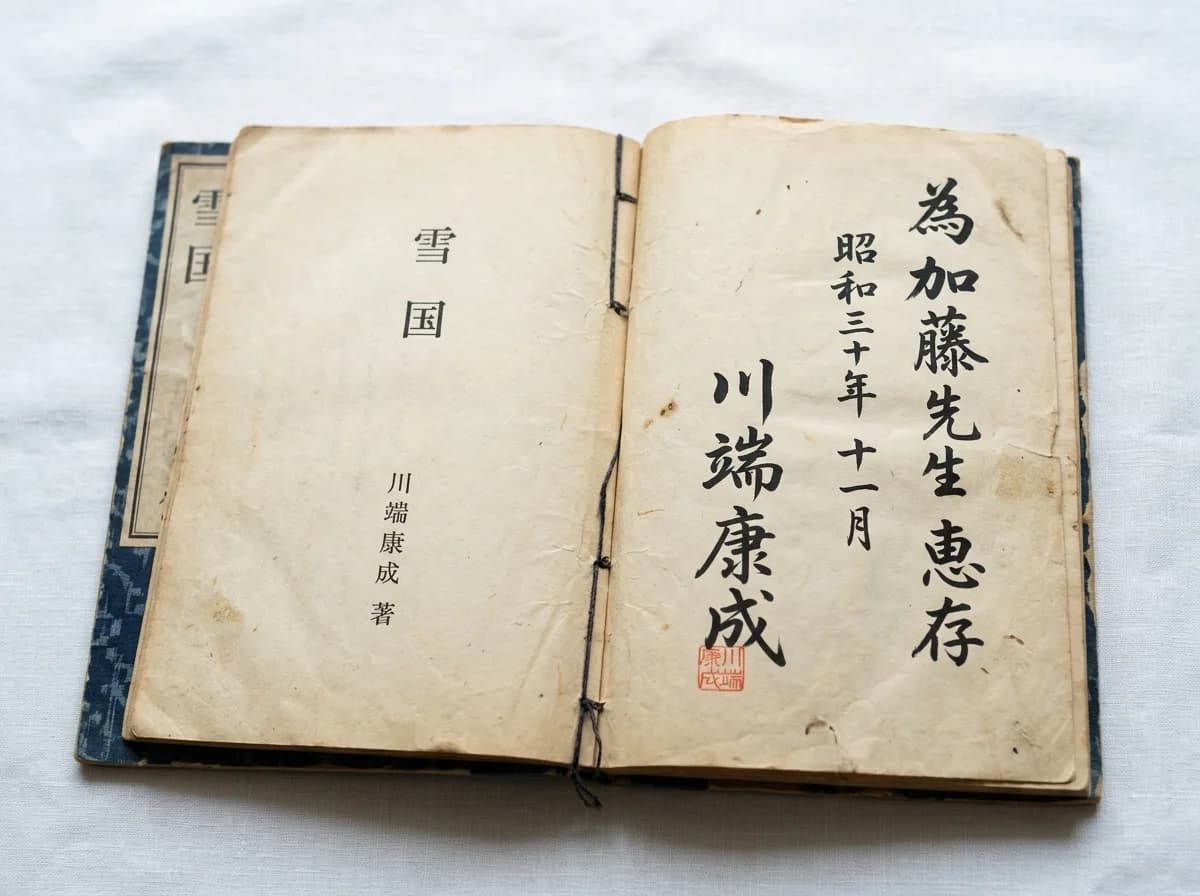 雪国
雪国
川端康成 著
為加藤先生 恵存
昭和三十年 十一月
川端康成
川端康成